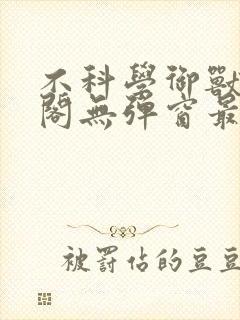 不科學御獸
閣無彈窗最
被罰佔的豆豆